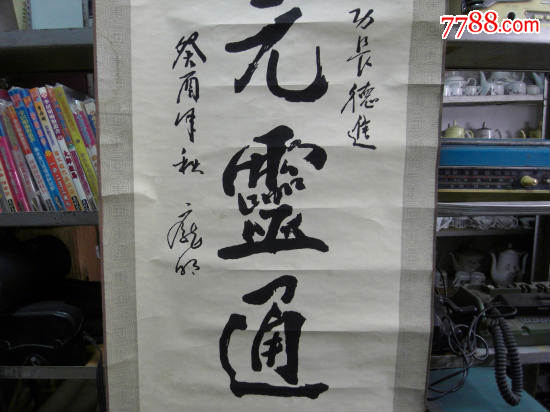 7788.com
功長德進
元靈通
癸酉年秋
龐明